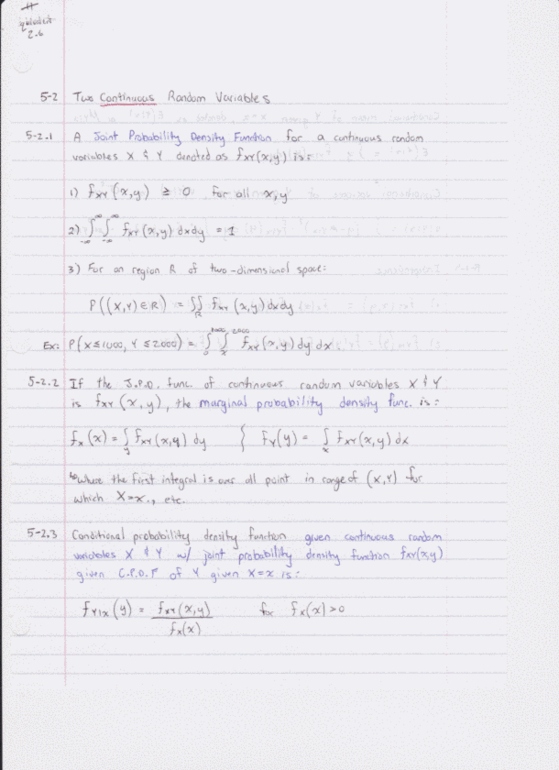 #
2.6
5-2 Two Continuous Random Variables
5-2.1 A Joint Probability Density Function for a continuous random
variables X & Y denoted as fxy(x,y) is:
1) fxy(x,y) ≥ 0 for all x,y
2) ∫∫ fxy(x,y) dxdy = 1
-∞ ∞ -∞ ∞
3) For an region R of two-dimensional space:
P((X,Y)∈R) = ∬R fxy(x,y) dxdy
Ex: P(X≤1000, Y≤2000) = ∫∫ fxy(x,y) dy dx
5-2.2 If the J.P.D. func. of continuous random variables X & Y
is fxy(x,y), the marginal probability density func. is:
fx(x) = ∫y fxy(x,y) dy } fy(y) = ∫x fxy(x,y) dx
↳ Where the first integral is over all point in range of (X,Y) for
which X=x, etc.
5-2.3 Conditional probability density function given continuous random
variables X & Y w/ joint probability density function fxy(x,y)
given C.P.D.F of Y given X=x is:
fY|x(y) = fxy(x,y) for fx(x) > 0
fx(x)